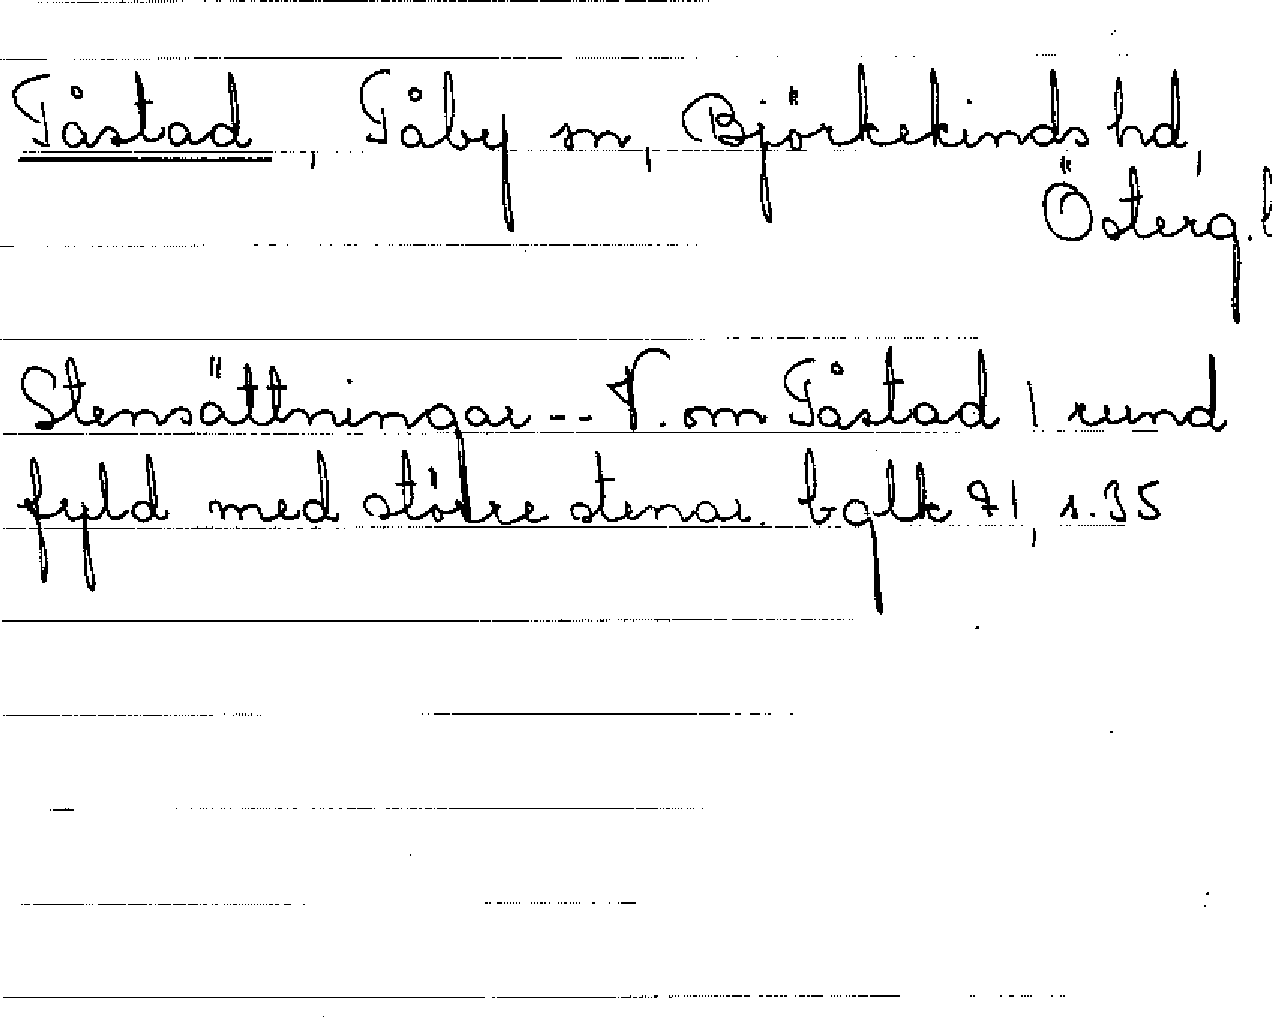 Tåstad, Tåby sn, Björkekinds hd,
Österg. l
Stensättningar -- V. om Tåstad 1 rund
fyld med större stenar. bglk 71, s. 35